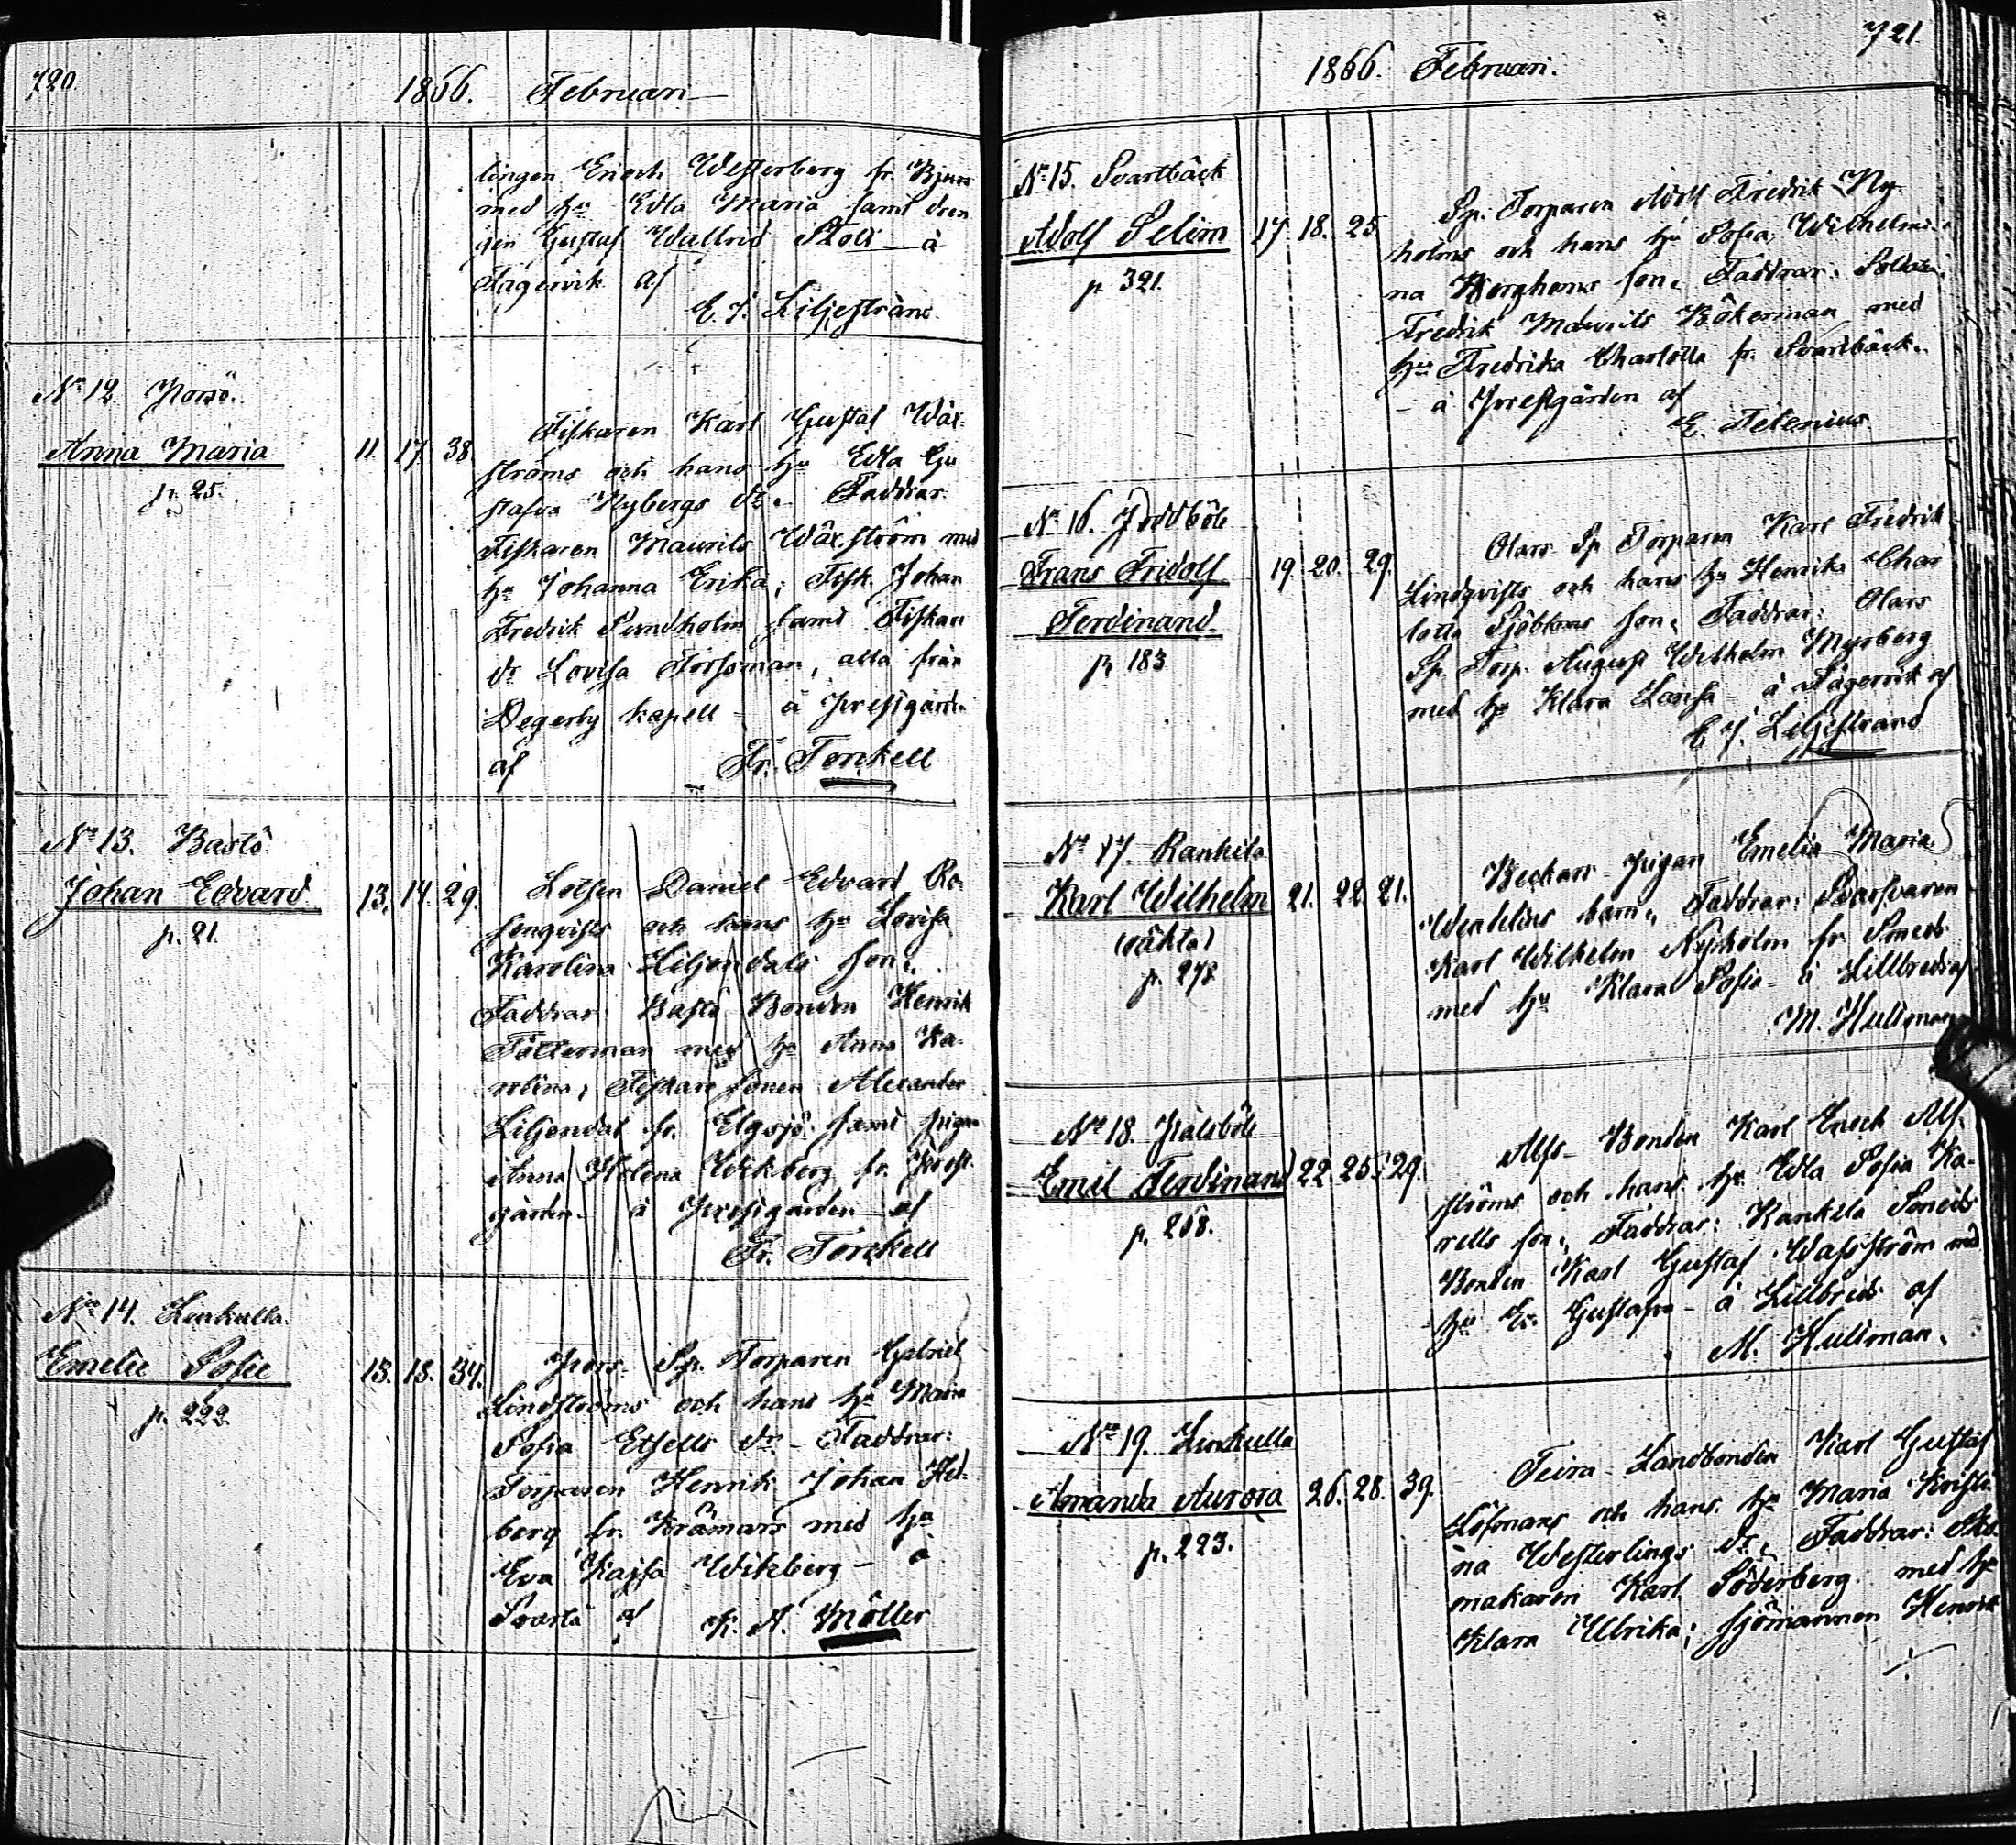 720
1866. Februari
lingen Enoch Westerberg fr. Bjers
med hu Edla Maria samt dren
gen Gustaf Wallrid Sköld - å
Fagervik af
E. J. Liljestrand
No 12 Porsö.
Anna Maria 11. 17. 38.
p. 25.
Fiskaren Karl Gustaf Wäx-
ströms och hans hu Edla Gu
stafva Nybergs dr. Faddrar
Fiskaren Maurits Wäxström med
hu Johanna Erika; Fisk. Johan
Fredrik Sundholm samt Fiskare
dr Lovisa Forssman, alla från
Degerby kapell - å Prestgården
af Fr. Torckell
No 13. Bastö
Johan Edvard 13. 14. 29.
p. 21.
Lotsen Daniel Edvard Ro-
senqvists och hans hu Lovisa
Karolina Liljendals son.
Faddrar Bastö Bonden Henrik
Fätterman med hu Anna Ka-
rolina, Fiskare sonen Alexander
Liljendal fr. Elgsjö samt pigan
Anna Helena Wikberg fr. Prest-
gården - å Prestgården af
Fr. Torckell
No 14. Linkulla
Emelie Sofie 15. 18. 34.
p. 222.
Pers Sp. Torparen Gabriel
Lindströms och hans hu Maria
Sofia Etsells dr - Faddrar:
Torparen Henrik Johan Hed-
berg fr. Krämars med hu
Eva Kajsa Wikberg - å
Svartå af K. A. Möller
721
1866. Februari.
No 15. Svartbäck
Adolf Selim 17. 18. 25.
p. 321.
Sp. Torparen Adolf Fredrik Ny-
holms och hans hu Sofia Wilhelmi-
na Berghems son. Faddrar: Soldaten
Fredrik Maurits Bökerman med
hu Fredrika Charlotta fr. Svartbäck.
- å Prestgården af
E. Telenius
No 16. Joddböle
Frans Fridolf 19. 20. 29.
Ferdinand
p. 183
Olars Sp Torparen Karl Fredrik
Lindqvists och hans hu Henrika Char
lotta Sjöbloms son. Faddrar: Olars
Sp. Torp. August Wilhelm Myrberg
med hu Klara Lovisa - å Fagervik af
E. J. Liljestrand
No 17. Rankila
Karl Wilhelm 21. 22. 21.
(oäkta)
p. 278
Beckars - pigan Emelia Maria
Wendelins barn. Faddrar: Svarfvaren
Karl Wilhelm Nyholm fr Smeds
med hu Klara Sofia - å Lillbreds af
M. Hultman
No 18. Pålsböle
Emil Ferdinand 22. 25. 29.
p. 268.
Alfs - Bonden Karl Enoch Alf-
ströms och hans hu Edla Sofia Ka-
rells son. Faddrar: Kankila Smeds
Bonden Karl Gustaf Wafström med
hu Ev. Gustava - å Lillbreds af
M. Hultman.
No 19. Linkulla
Amanda Aurora 26. 28. 39.
p. 223.
Teira - Landbonden Karl Gustaf
Löfmans och hans hu Maria Kristi-
na Westerlings dr. Faddrar: Sko-
makaren Karl Söderberg med hu
Klara Ulrika; sjömannen Henrik